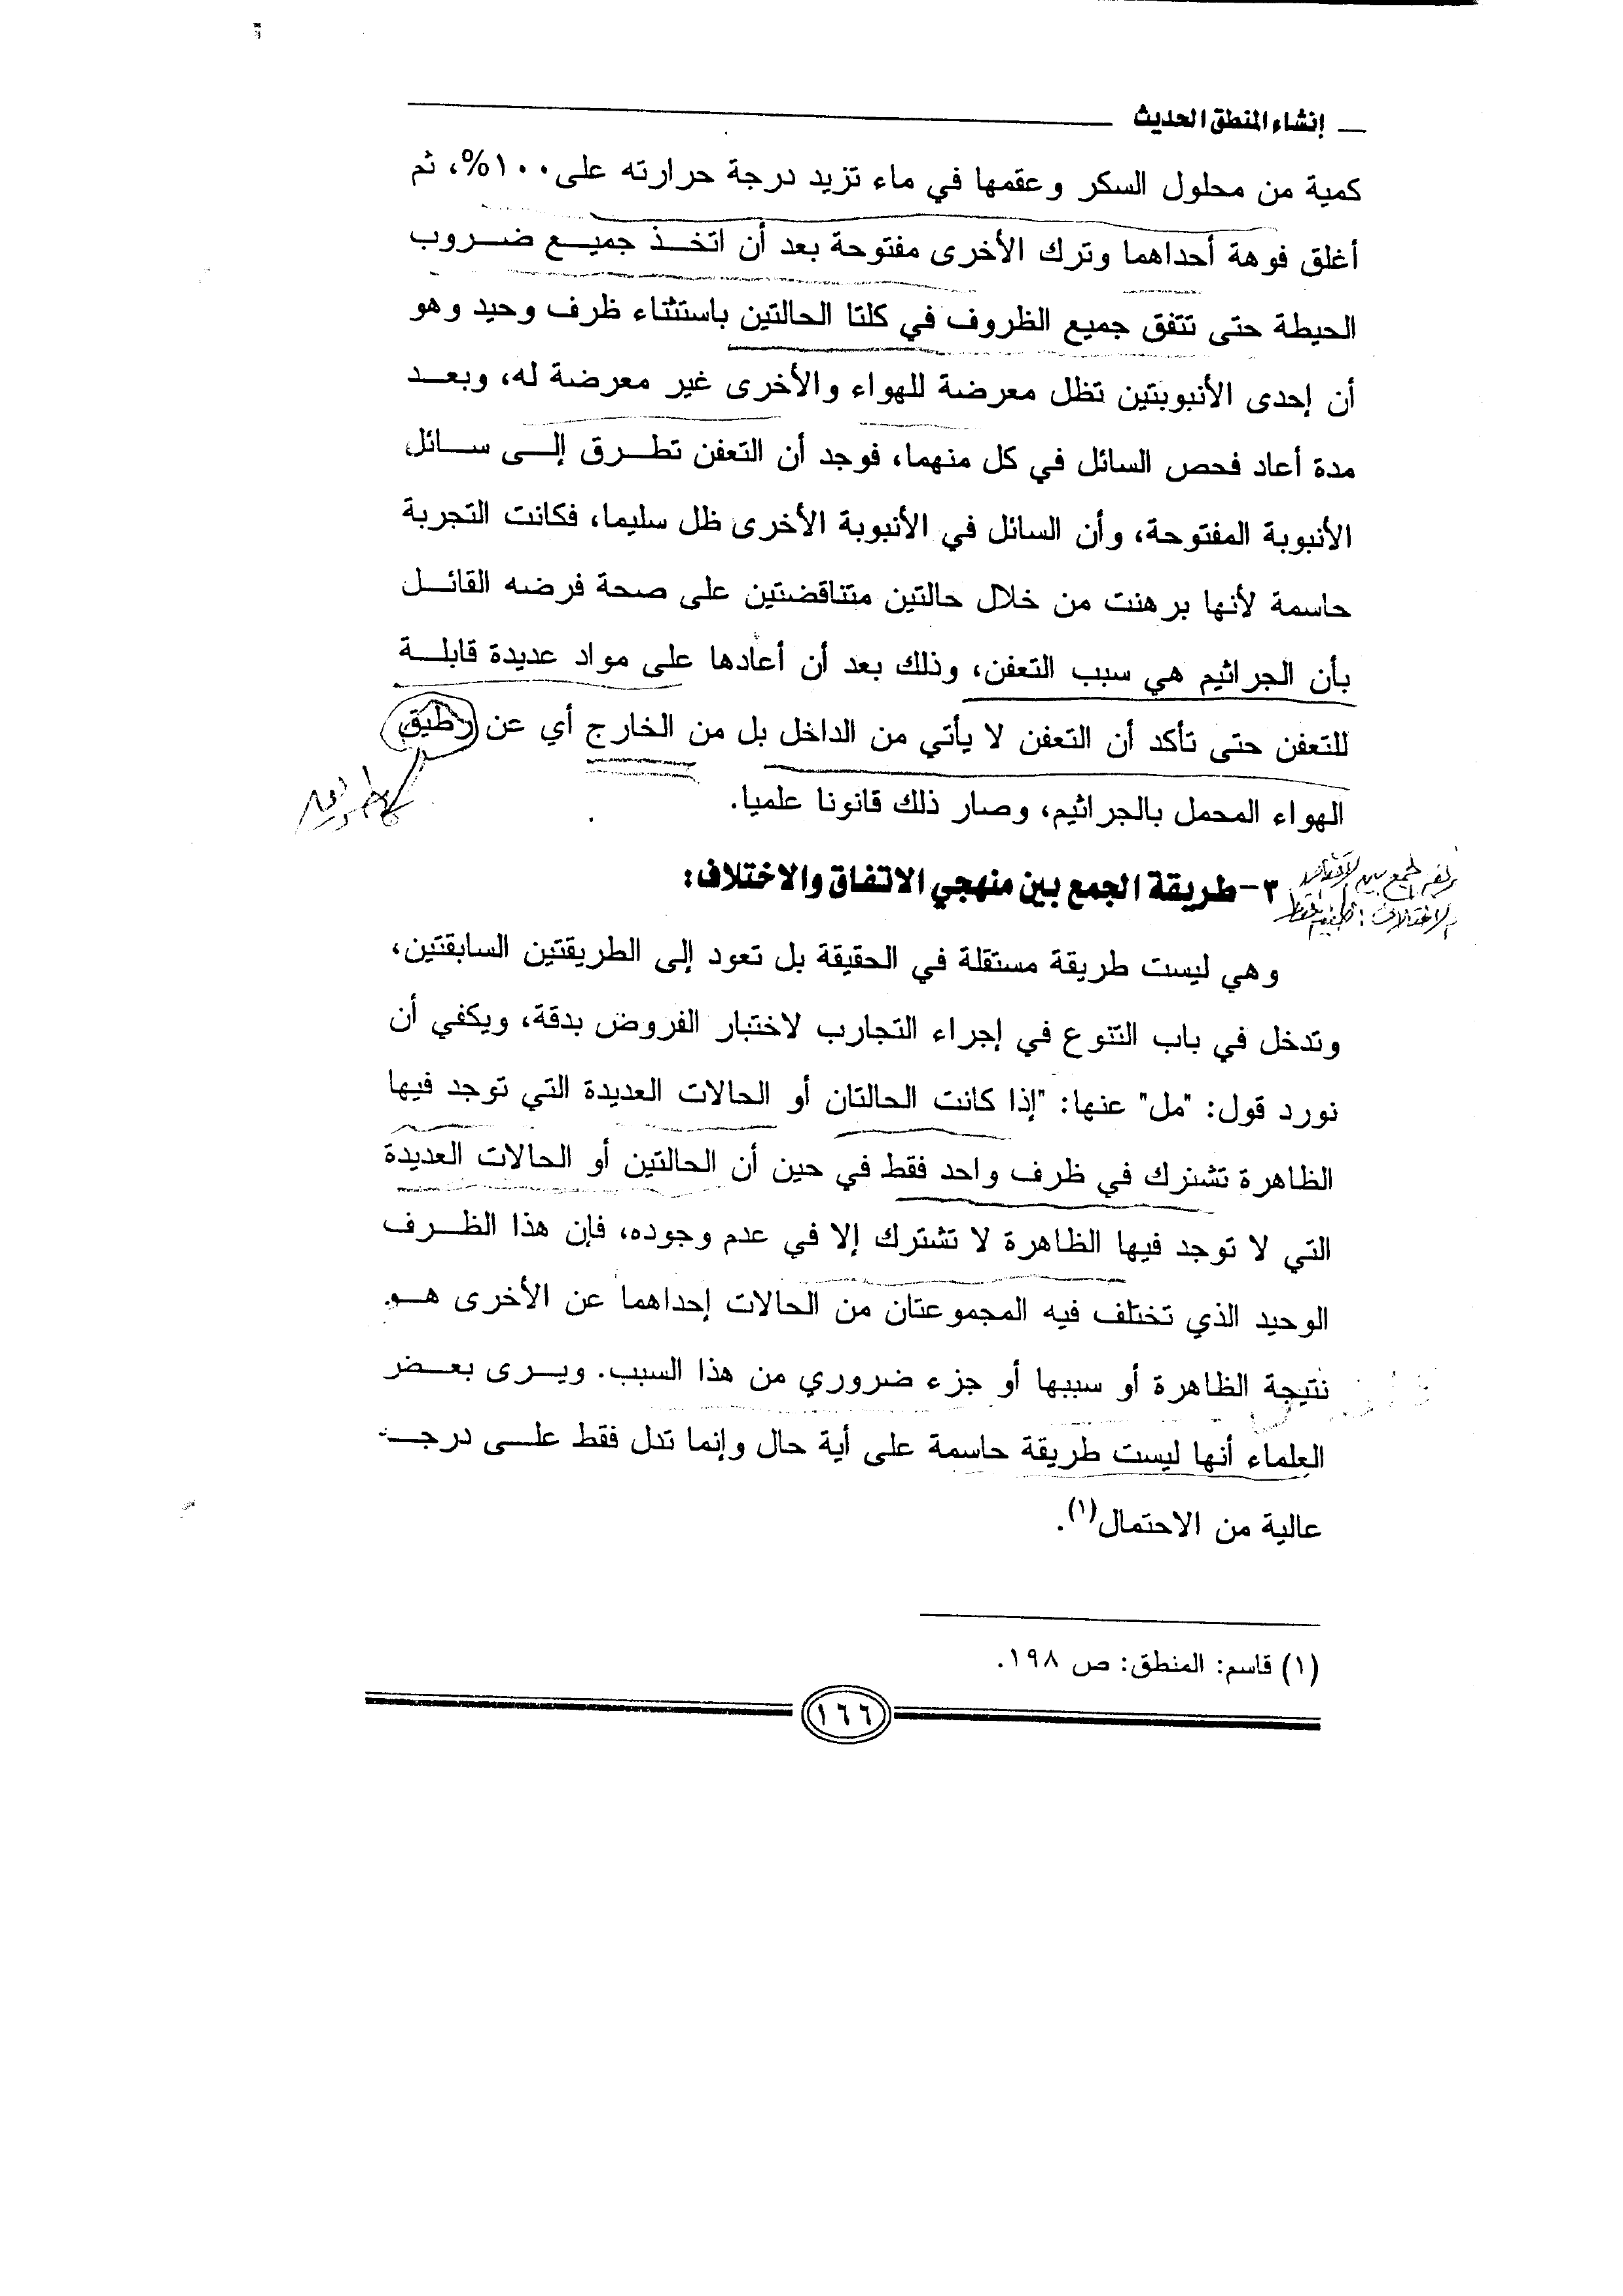 إنشاء المنطق الحديث
كمية من محلول السكر وعقمها في ماء تزيد درجة حرارته على ١٠٠%، ثم
أغلق فوهة أحداهما وترك الأخرى مفتوحة بعد أن اتخذ جميع ضروب
الحيطة حتى تتفق جميع الظروف في كلتا الحالتين باستثناء ظرف وحيد وهو
أن إحدى الأنبوبتين تظل معرضة للهواء والأخرى غير معرضة له، وبعد
مدة أعاد فحص السائل في كل منهما، فوجد أن التعفن تطرق إلى سائل
الأنبوبة المفتوحة، وأن السائل في الأنبوبة الأخرى ظل سليما، فكانت التجربة
حاسمة لأنها برهنت من خلال حالتين متناقضتين على صحة فرضه القائل
بأن الجراثيم هي سبب التعفن، وذلك بعد أن أعادها على مواد عديدة قابلة
للتعفن حتى تأكد أن التعفن لا يأتي من الداخل بل من الخارج أي عن رطيق
الهواء المحمل بالجراثيم، وصار ذلك قانونا علميا.
٣- طريقة الجمع بين منهجي الاتفاق والاختلاف:
وهي ليست طريقة مستقلة في الحقيقة بل تعود إلى الطريقتين السابقتين،
وتدخل في باب التنوع في إجراء التجارب لاختبار الفروض بدقة، ويكفي أن
نورد قول: "مل" عنها: "إذا كانت الحالتان أو الحالات العديدة التي توجد فيها
الظاهرة تشترك في ظرف واحد فقط في حين أن الحالتين أو الحالات العديدة
التي لا توجد فيها الظاهرة لا تشترك إلا في عدم وجوده، فإن هذا الظرف
الوحيد الذي تختلف فيه المجموعتان من الحالات إحداهما عن الأخرى هو
نتيجة الظاهرة أو سببها أو جزء ضروري من هذا السبب. ويرى بعض
العلماء أنها ليست طريقة حاسمة على أية حال وإنما تدل فقط على درجة
عالية من الاحتمال(١).
(١) قاسم: المنطق: ص ١٩٨.
١٦٦